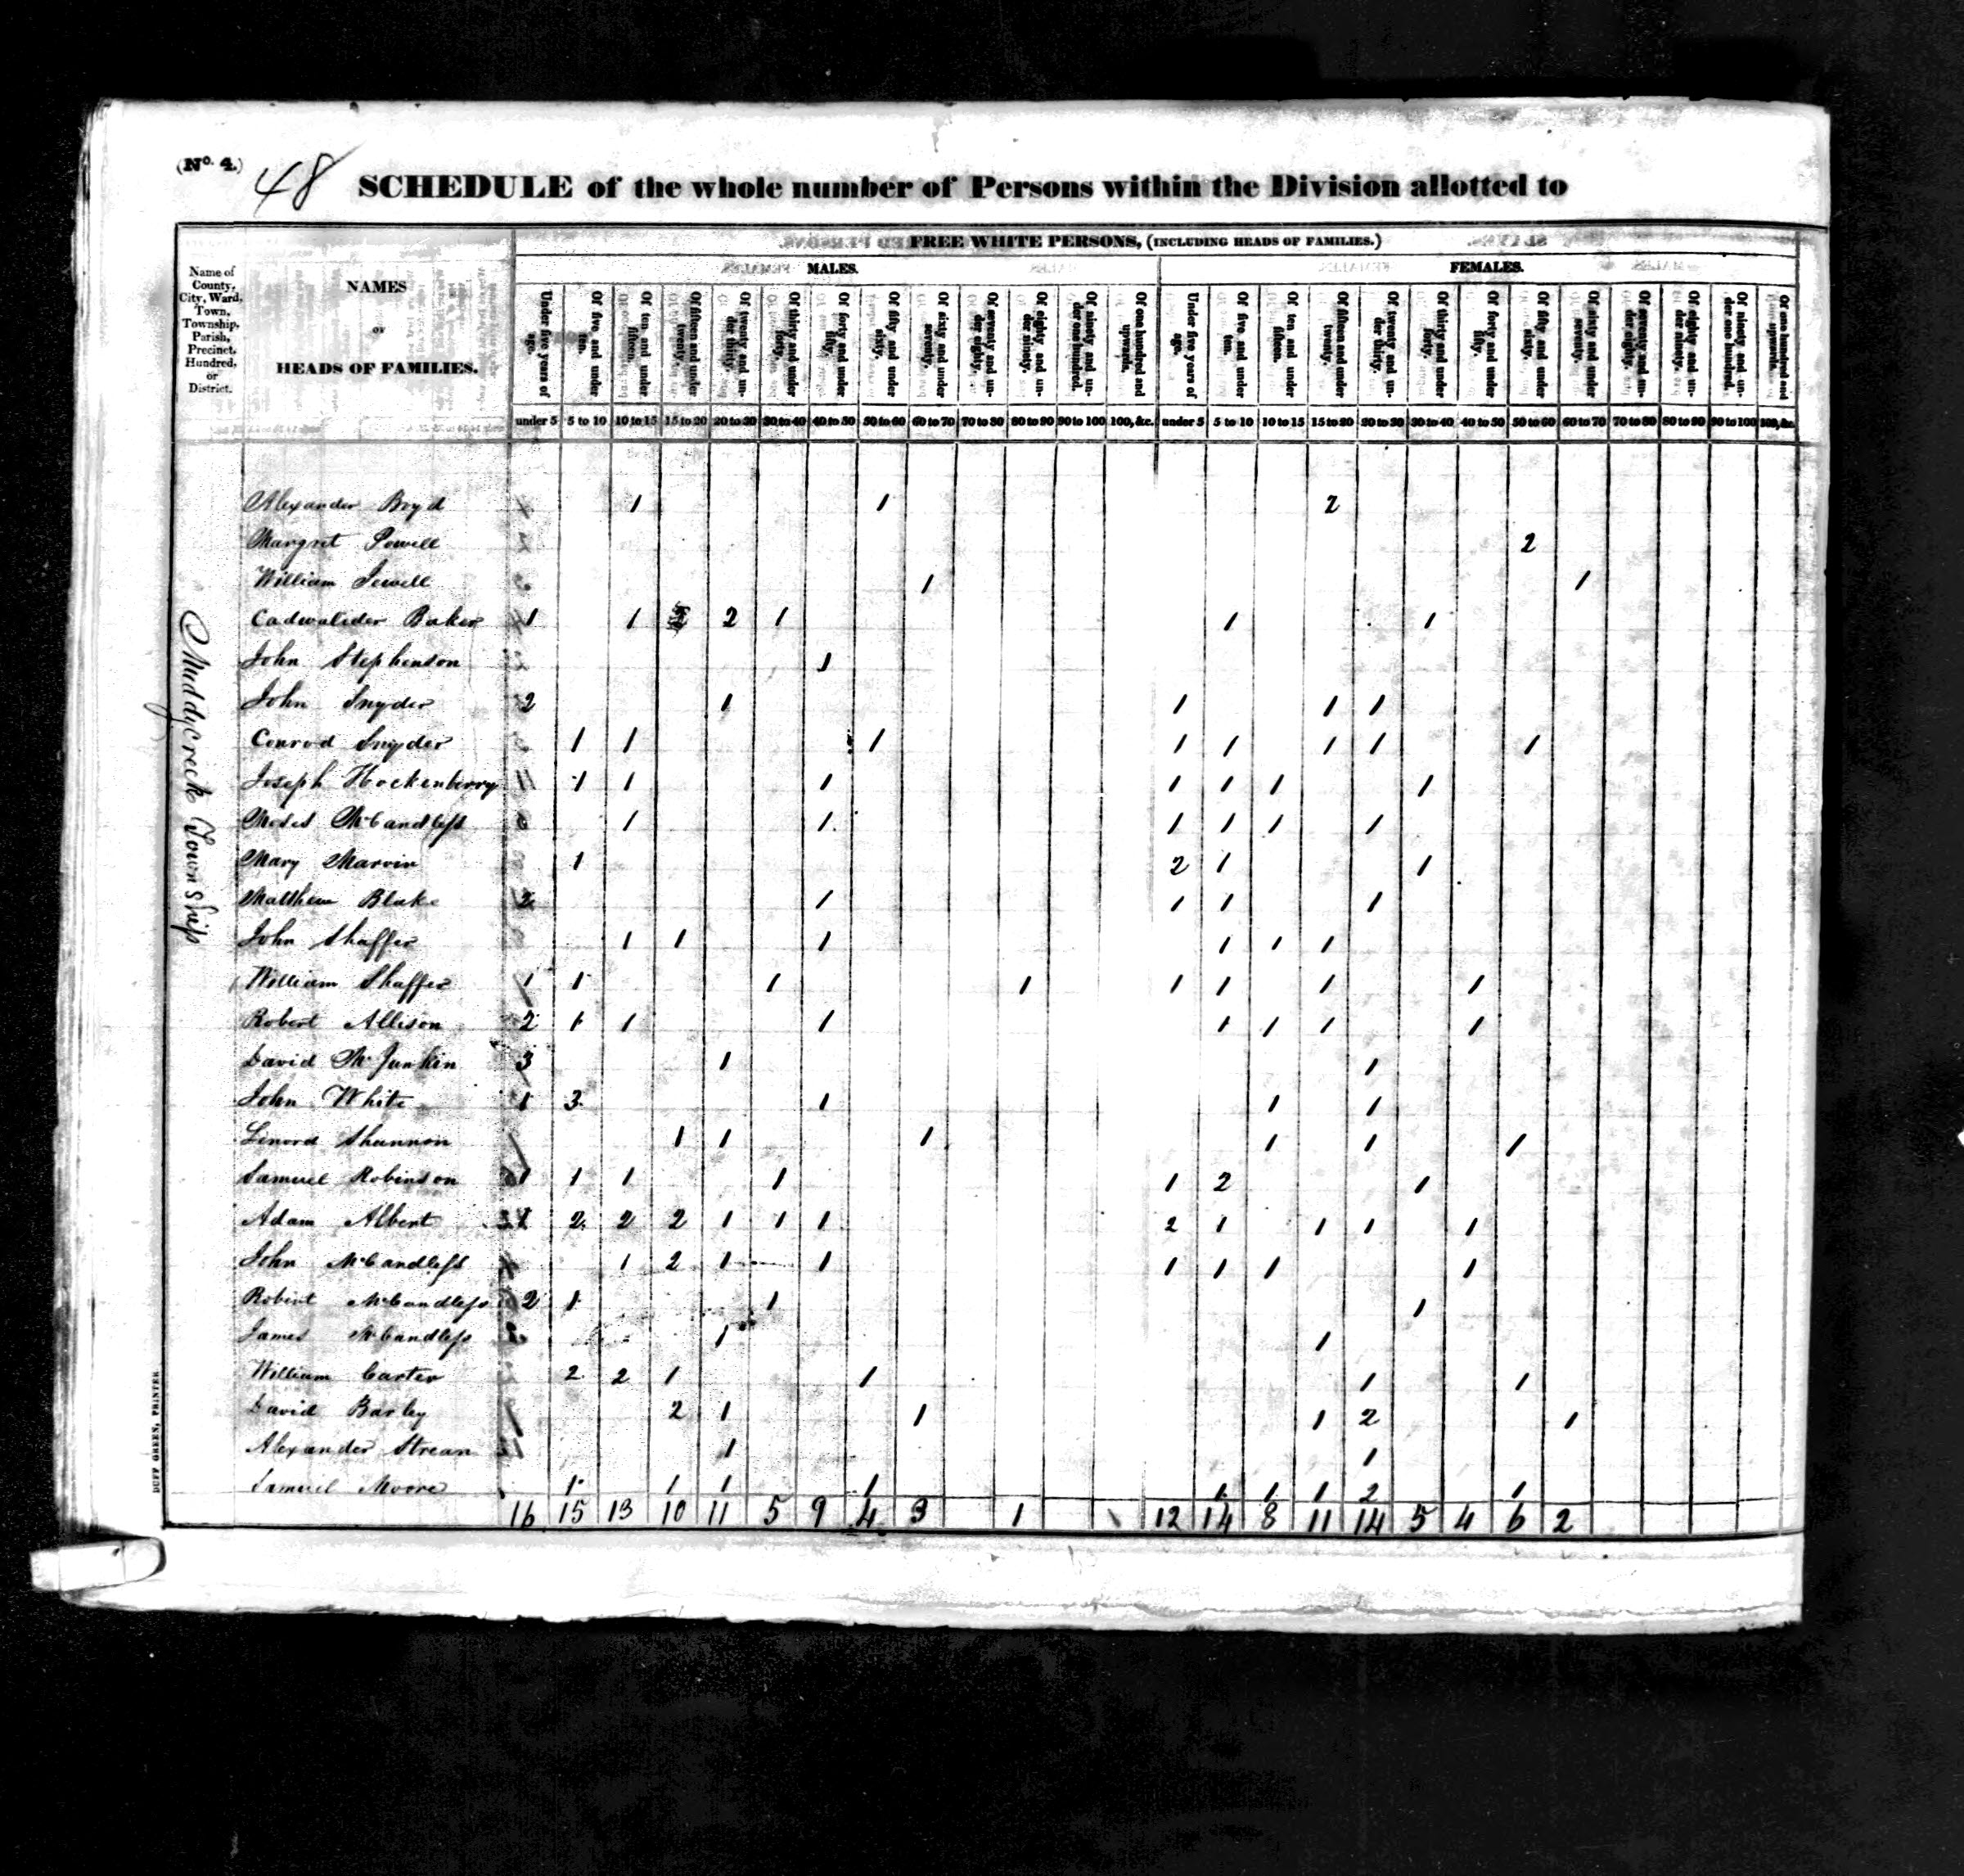 (No. 4.)
48
SCHEDULE of the whole number of Persons within the Division allotted to
FREE WHITE PERSONS, (INCLUDING HEADS OF FAMILIES.)
MALES. FEMALES.
Name of County, City, Ward, Town, Township, Parish, Precinct, Hundred, or District.
NAMES
OF
HEADS OF FAMILIES.
Under five years of age.
Of five and under ten.
Of ten and under fifteen.
Of fifteen and under twenty.
Of twenty and under thirty.
Of thirty and under forty.
Of forty and under fifty.
Of fifty and under sixty.
Of sixty and under seventy.
Of seventy and under eighty.
Of eighty and under ninety.
Of ninety and under one hundred.
Of one hundred and upwards.
Under five years of age.
Of five and under ten.
Of ten and under fifteen.
Of fifteen and under twenty.
Of twenty and under thirty.
Of thirty and under forty.
Of forty and under fifty.
Of fifty and under sixty.
Of sixty and under seventy.
Of seventy and under eighty.
Of eighty and under ninety.
Of ninety and under one hundred.
Of one hundred and upwards.
under 5 5 to 10 10 to 15 15 to 20 20 to 30 30 to 40 40 to 50 50 to 60 60 to 70 70 to 80 80 to 90 90 to 100 100, &c. under 5 5 to 10 10 to 15 15 to 20 20 to 30 30 to 40 40 to 50 50 to 60 60 to 70 70 to 80 80 to 90 90 to 100 100, &c.
Muddycreek Township
Alexander Boyd 1 1 2
Margret Powell 2
William Jewell 1 1
Cadwalider Baker 1 1 2 2 1 1 1
John Stephenson 1
John Snyder 2 1 1 1 1
Conrod Snyder 1 1 1 1 1 1 1 1
Joseph Hockenberry 1 1 1 1 1 1 1
Moses McCandless 1 1 1 1 1 1
Mary Marvin 1 2 1 1
Matthew Blake 2 1 1 1 1
John Shaffer 1 1 1 1 1 1
William Shaffer 1 1 1 1 1 1 1 1
Robert Allison 2 1 1 1 1 1 1 1
David McJunkin 3 1 1
John White 1 3 1 1 1
Lenord Shannon 1 1 1 1 1 1
Samuel Robinson 1 1 1 1 1 2 1
Adam Albert 1 2 2 2 1 1 1 2 1 1 1 1
John McCandless 1 2 1 1 1 1 1 1
Robert McCandless 2 1 1 1
James McCandless 1 1
William Carter 2 2 1 1 1 1
David Barley 2 1 1 1 2 1
Alexander Strean 1 1
Samuel Moore 1 1 1 1 1 1 1 2 1
16 15 13 10 11 5 9 4 3 1 12 14 8 11 14 5 4 6 2
DUFF GREEN, PRINTER